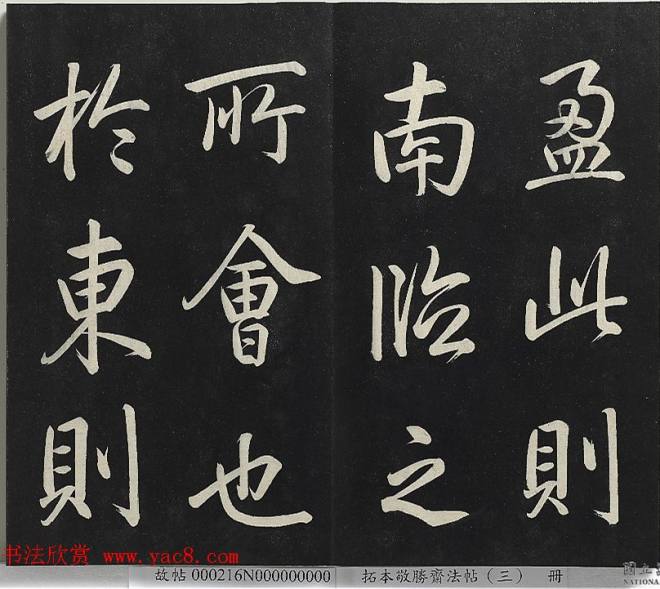 盈此則
南臨之
所會也
於東則
书法欣赏 www.yac8.com
故帖 000216N000000000
拓本敬勝齋法帖（三） 冊
國立
NATIONAL